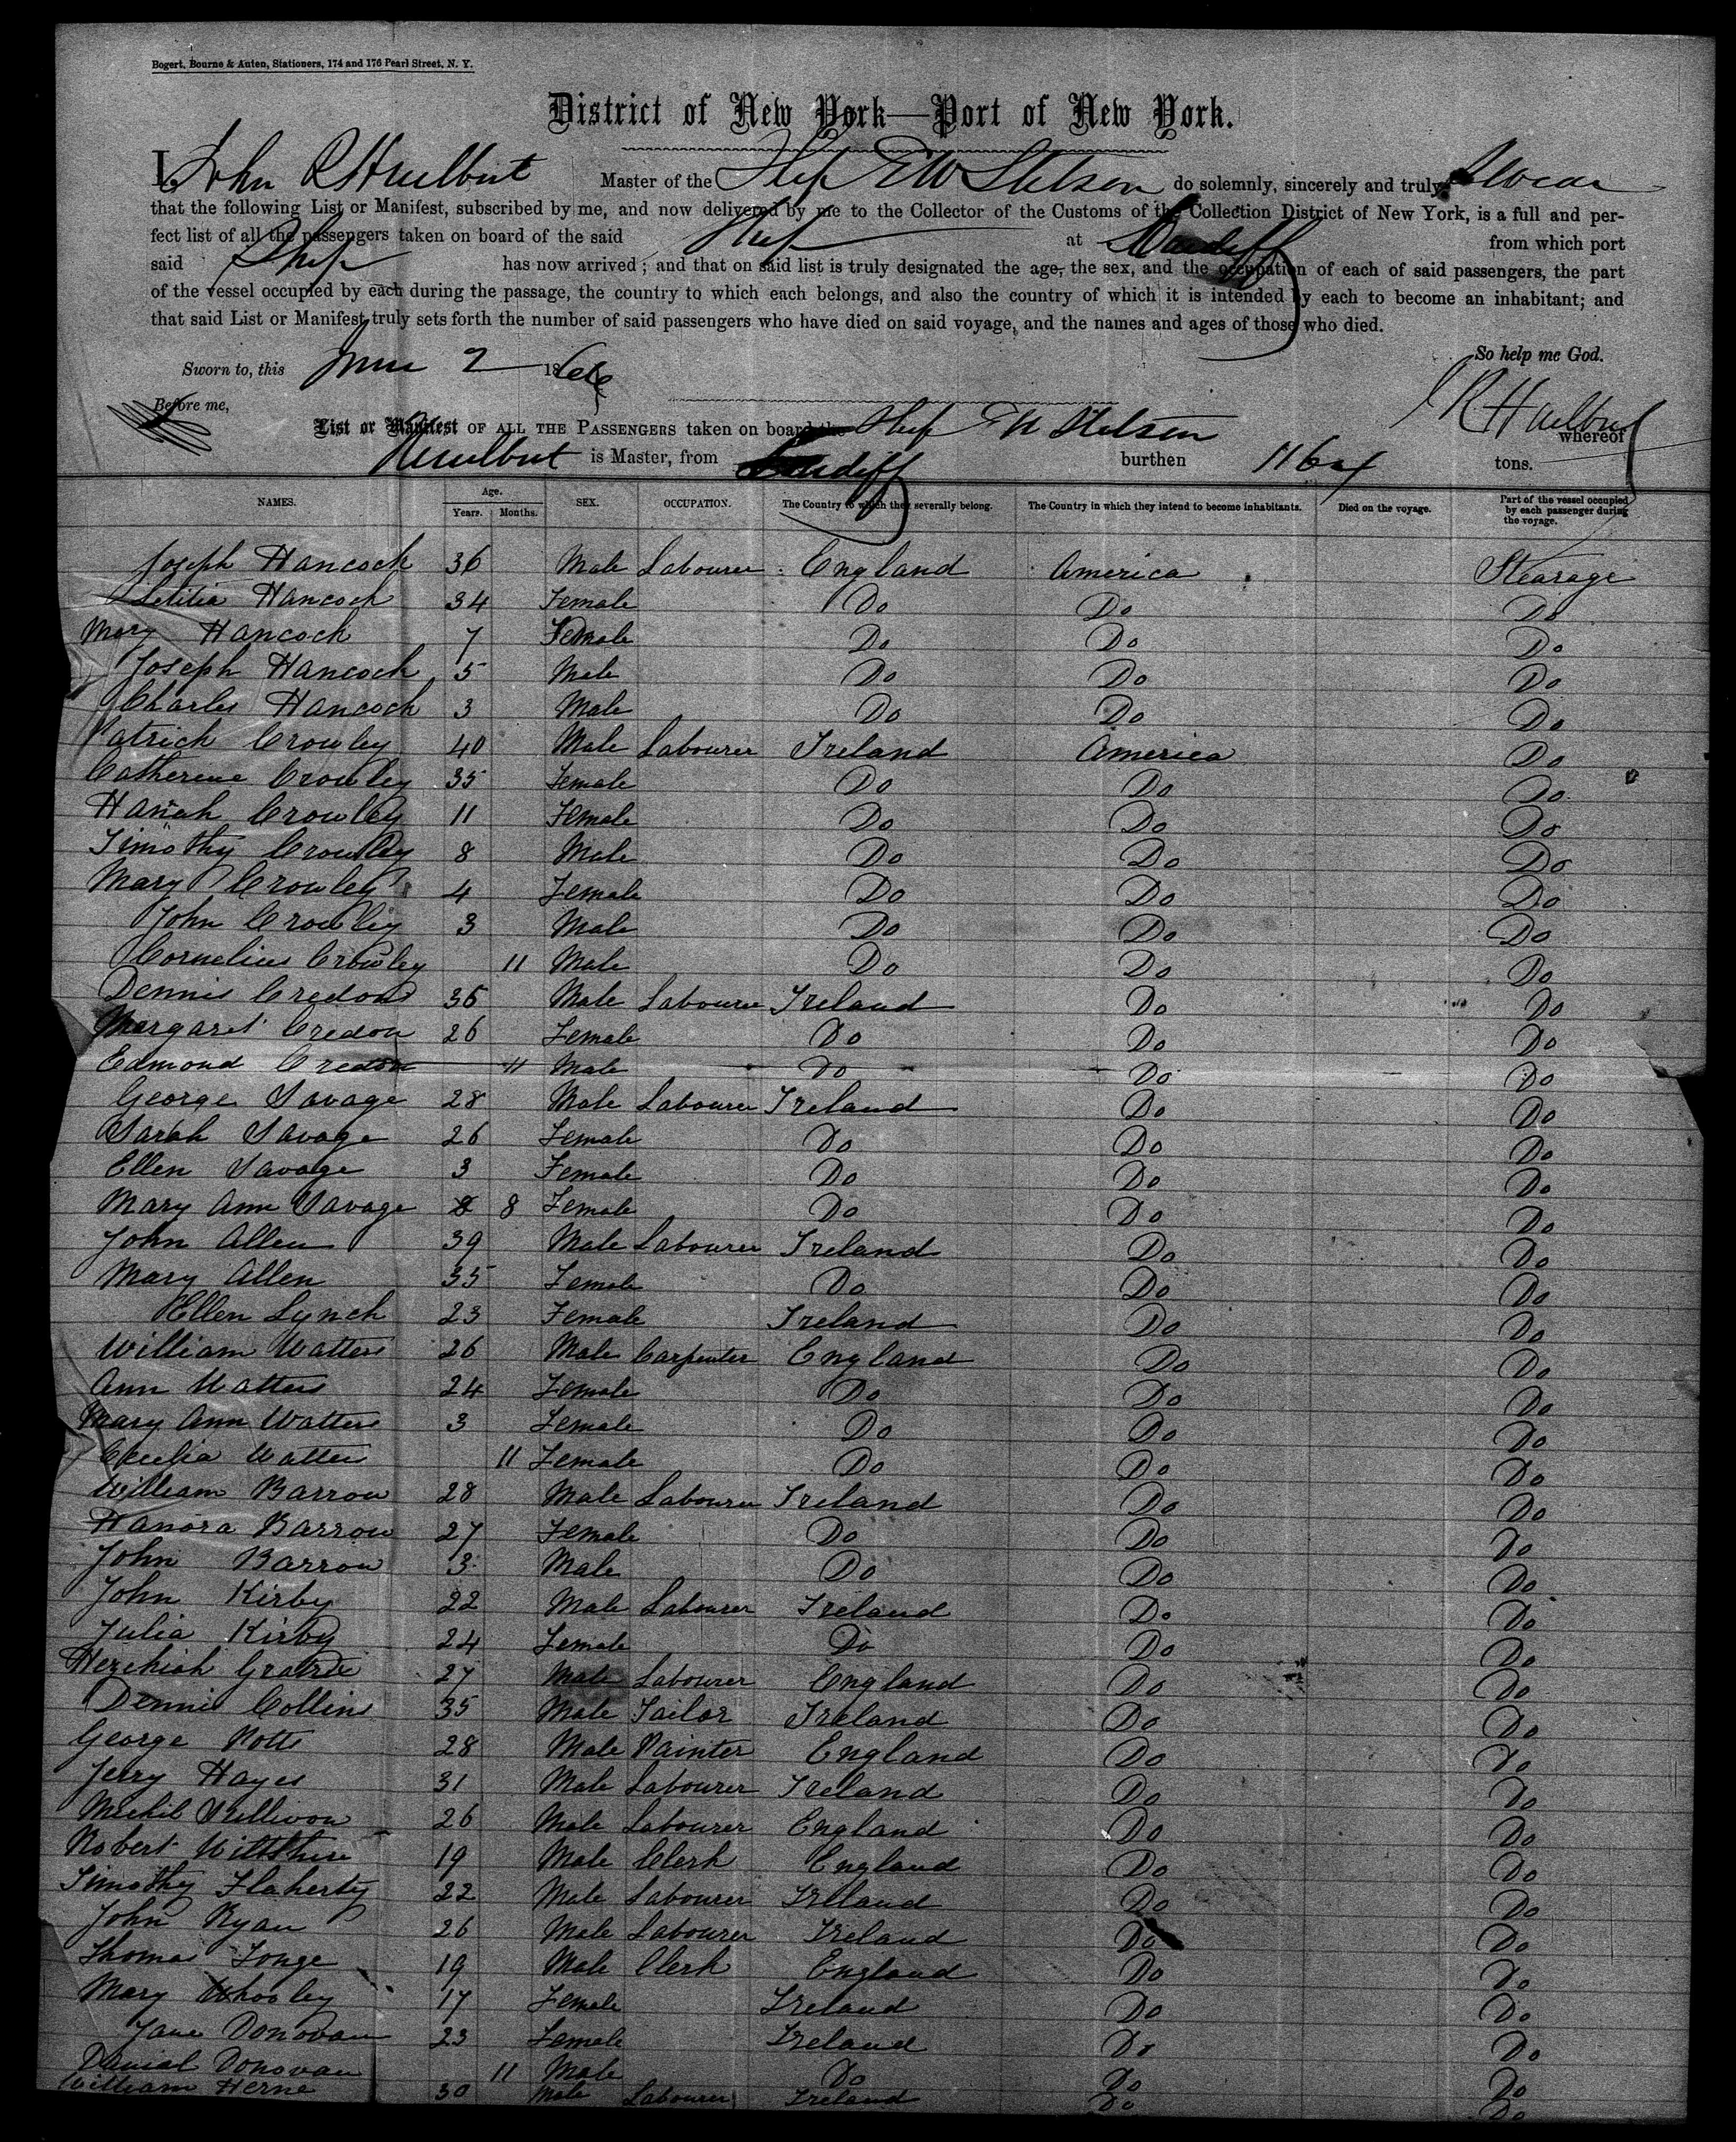 Bogert, Bourne & Auten, Stationers, 174 and 176 Pearl Street, N. Y.
District of New York—Port of New York.
I, John R Hurlbut Master of the Ship E W Stetson do solemnly, sincerely and truly Swear
that the following List or Manifest, subscribed by me, and now delivered by me to the Collector of the Customs of the Collection District of New York, is a full and per-
fect list of all the passengers taken on board of the said Ship at Cardiff from which port
said Ship has now arrived; and that on said list is truly designated the age, the sex, and the occupation of each of said passengers, the part
of the vessel occupied by each during the passage, the country to which each belongs, and also the country of which it is intended by each to become an inhabitant; and
that said List or Manifest truly sets forth the number of said passengers who have died on said voyage, and the names and ages of those who died.
So help me God.
Sworn to, this June 2 1866
J R Hurlbut
Before me,
List or Manifest OF ALL THE PASSENGERS taken on board the Ship E W Stetson whereof
Hurulbut is Master, from Cardiff burthen tons.
NAMES. Age. Years. Months. SEX. OCCUPATION. The Country to which they severally belong. The Country in which they intend to become inhabitants. Died on the voyage. Part of the vessel occupied by each passenger during the voyage.
Joseph Hancock 36 Male Labourer England America Stearage
Letitia Hancock 34 Female Do Do Do
Mary Hancock 7 Female Do Do Do
Joseph Hancock 5 Male Do Do Do
Charles Hancock 3 Male Do Do Do
Patrick Crowley 40 Male Labourer Ireland America Do
Catherine Crowley 35 Female Do Do Do
Hanah Crowley 11 Female Do Do Do
Timothy Crowley 8 Male Do Do Do
Mary Crowley 4 Female Do Do Do
John Crowley 3 Male Do Do Do
Cornelius Crowley 11 Male Do Do Do
Dennis Credon 36 Male Labourer Ireland Do Do
Margaret Credon 26 Female Do Do Do
Edmond Credon 11 Male Do Do Do
George Savage 28 Male Labourer Ireland Do Do
Sarah Savage 26 Female Do Do Do
Ellen Savage 3 Female Do Do Do
Mary Ann Savage 8 8 Female Do Do Do
John Allen 39 Male Labourer Ireland Do Do
Mary Allen 35 Female Do Do Do
Ellen Lynch 23 Female Ireland Do Do
William Watters 26 Male Carpenter England Do Do
Ann Watters 24 Female Do Do Do
Mary Ann Watters 3 Female Do Do Do
Cecelia Watters 11 Female Do Do Do
William Barrow 28 Male Labourer Ireland Do Do
Hanora Barrow 27 Female Do Do Do
John Barrow 3 Male Do Do Do
John Kirby 22 Male Labourer Ireland Do Do
Julia Kirby 24 Female Do Do Do
Hezekiah 27 Male Labourer England Do Do
Dennis Collins 35 Male Tailor Ireland Do Do
George Potts 28 Male Painter England Do Do
Jerry Hayes 31 Male Labourer Ireland Do Do
Michil Sullivan 26 Male Labourer England Do Do
Robert Wiltshire 19 Male Clerk England Do Do
Timothy Flaherty 22 Male Labourer Ireland Do Do
John Ryan 26 Male Labourer Ireland Do Do
Thomas Tonge 19 Male Clerk England Do Do
Mary Whooley 17 Female Ireland Do Do
Jane Donovan 23 Female Ireland Do Do
Danial Donovan 11 Male Do Do Do
William Herne 30 Male Labourer Ireland Do Do